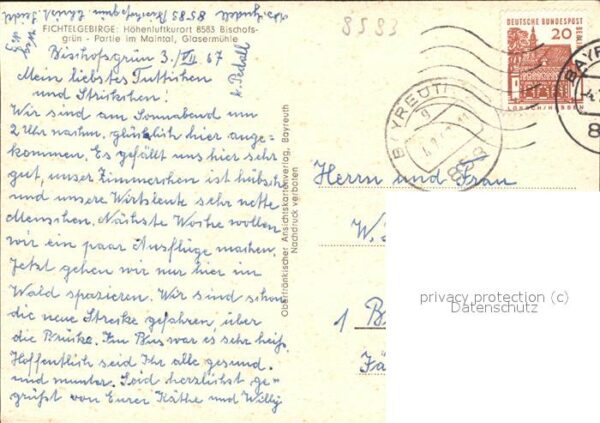 8583
FICHTELGEBIRGE: Höhenluftkurort 8583 Bischofs-
grün - Partie im Maintal, Glasermühle
Bischofsgrün 3./VII. 67
Mein liebstes Tuttichen
und Strickchen!
Wir sind am Sonnabend um
2 Uhr nachm. glücklich hier ange-
kommen. Es gefällt uns hier sehr
gut, unser Zimmerchen ist hübsch
und unsere Wirtsleute sehr nette
Menschen. Nächste Woche wollen
wir ein paar Ausflüge machen.
Jetzt gehen wir nur hier im
Wald spazieren. Wir sind schon
die neue Strecke gefahren, über
die Brücke. Im Bus war es sehr heiß.
Hoffentlich seid Ihr alle gesund
und munter. Seid herzlichst ge-
grüßt von Eurer Käthe und Willy
Oberfränkischer Ansichtskartenverlag, Bayreuth
Nachdruck verboten
DEUTSCHE BUNDESPOST
BERLIN
20
LORSCH/HESSEN
BAYREUTH
BAYR
8
Herrn und Frau
W.
1 B
Fä
privacy protection (c)
Datenschutz